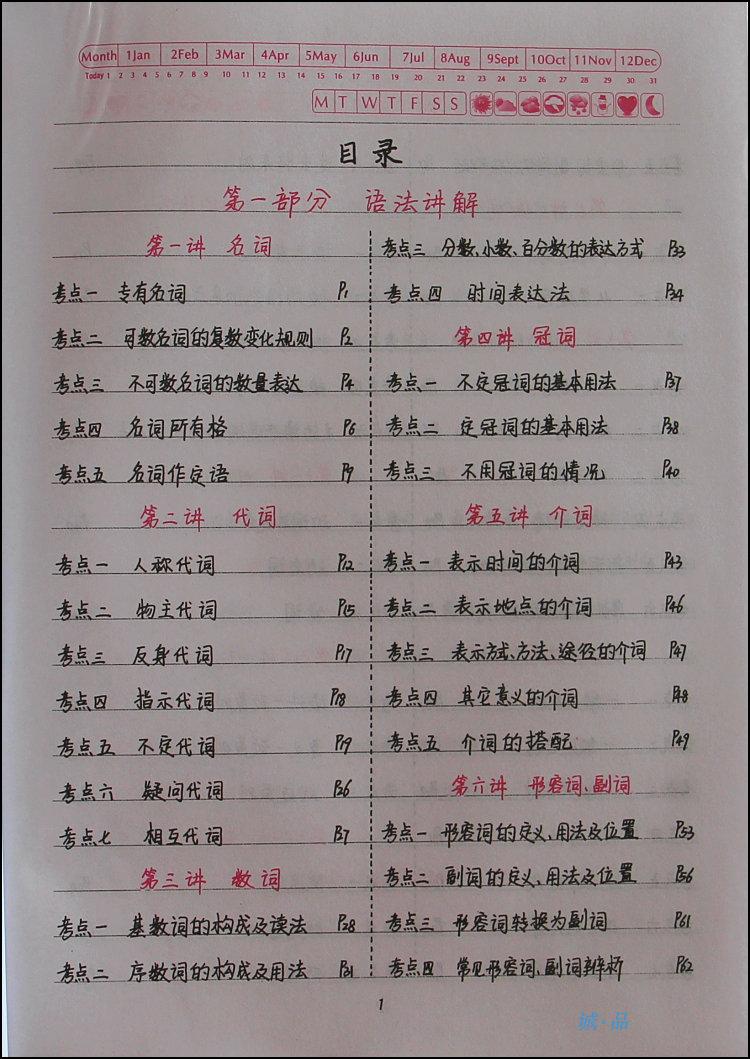 Month 1Jan 2Feb 3Mar 4Apr 5May 6Jun 7Jul 8Aug 9Sept 10Oct 11Nov 12Dec
Today 1 2 3 4 5 6 7 8 9 10 11 12 13 14 15 16 17 18 19 20 21 22 23 24 25 26 27 28 29 30 31
M T W T F S S
目录
第一部分 语法讲解
第一讲 名词
考点一 专有名词 P1
考点二 可数名词的复数变化规则 P2
考点三 不可数名词的数量表达 P4
考点四 名词所有格 P6
考点五 名词作定语 P9
第二讲 代词
考点一 人称代词 P12
考点二 物主代词 P15
考点三 反身代词 P17
考点四 指示代词 P18
考点五 不定代词 P19
考点六 疑问代词 P26
考点七 相互代词 P27
第三讲 数词
考点一 基数词的构成及读法 P28
考点二 序数词的构成及用法 P31
考点三 分数、小数、百分数的表达方式 P33
考点四 时间表达法 P34
第四讲 冠词
考点一 不定冠词的基本用法 P37
考点二 定冠词的基本用法 P38
考点三 不用冠词的情况 P40
第五讲 介词
考点一 表示时间的介词 P43
考点二 表示地点的介词 P46
考点三 表示方式、方法、途径的介词 P47
考点四 其它意义的介词 P48
考点五 介词的搭配 P49
第六讲 形容词、副词
考点一 形容词的定义、用法及位置 P53
考点二 副词的定义、用法及位置 P56
考点三 形容词转换为副词 P61
考点四 常见形容词、副词辨析 P62
1
诚·品